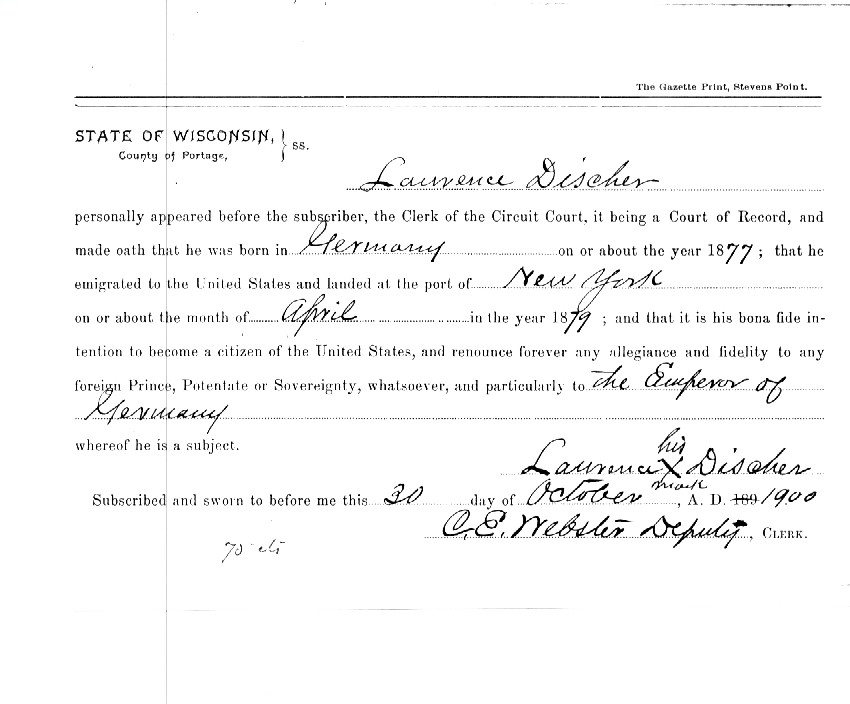 The Gazette Print, Stevens Point.
STATE OF WISCONSIN, } ss.
County of Portage,
Laurence Discher
personally appeared before the subscriber, the Clerk of the Circuit Court, it being a Court of Record, and
made oath that he was born in Germany on or about the year 1877 ; that he
emigrated to the United States and landed at the port of New York
on or about the month of April in the year 1879 ; and that it is his bona fide in-
tention to become a citizen of the United States, and renounce forever any allegiance and fidelity to any
foreign Prince, Potentate or Sovereignty, whatsoever, and particularly to the Emperor of
Germany
whereof he is a subject.
his
Laurence X Discher
mark
Subscribed and sworn to before me this 30 day of October, A. D. 189 1900
C. E. Webster Deputy, CLERK.